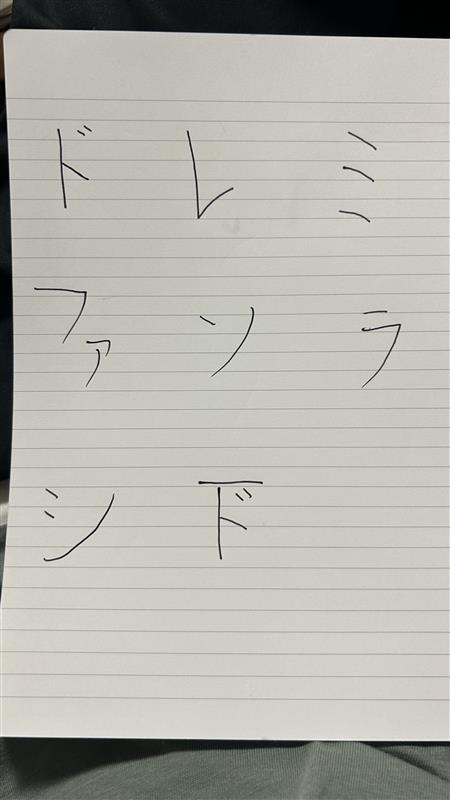 ド レ ミ
ファ ソ ラ
シ ド̅